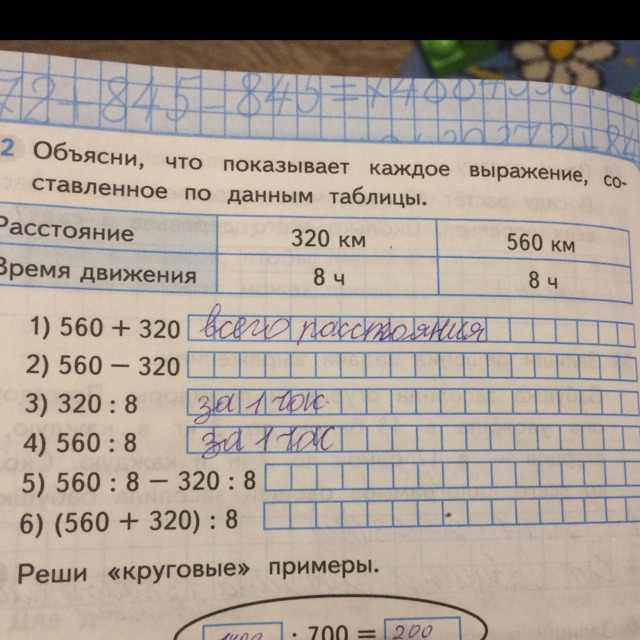 72+845-845=
2 Объясни, что показывает каждое выражение, со-
ставленное по данным таблицы.
Расстояние 320 км 560 км
Время движения 8 ч 8 ч
1) 560 + 320 всего расстояния
2) 560 – 320
3) 320 : 8 за 1 час
4) 560 : 8 за 1 час
5) 560 : 8 – 320 : 8
6) (560 + 320) : 8
Реши «круговые» примеры.
: 700 = 200